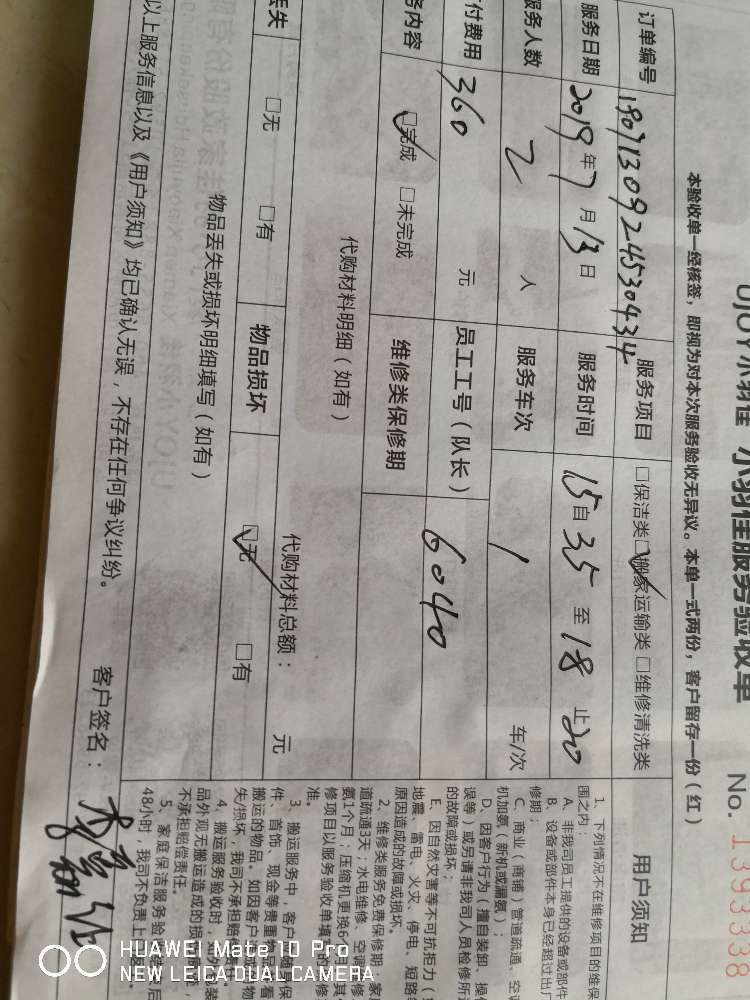 UJOY小羽佳 小羽佳服务验收单 No. 1393338
本验收单一经核签，即视为对本次服务验收无异议。本单一式两份，客户留存一份（红）
订单编号 1907130924530434 服务项目 □保洁类 ☑搬家运输类 □维修清洗类
服务日期 2019年7月13日 服务时间 15自35至18止20
服务人数 2 人 服务车次 1 车/次
付费用 360 元 员工工号（队长） 6040
务内容 ☑完成 □未完成 维修类保修期
代购材料明细（如有）
代购材料总额： 元
丢失 □无 □有 物品损坏 ☑无 □有
物品丢失或损坏明细填写（如有）
以上服务信息以及《用户须知》均已确认无误，不存在任何争议纠纷。
客户签名：
用户须知
1、下列情况不在维修项目的维保
围之内：
A、非我司员工提供的设备或部件
B、设备或部件本身已经超过出厂
修期；
C、商业（商铺）管道疏通、空调
机加氨（新机或漏氨）；
D、因客户行为（擅自装卸、操作
误等）或另请非我司人员检修所造
的故障或损坏；
E、因自然灾害等不可抗拒力（
地震、雷电、火灾、停电、短路等
原因造成的故障或损坏。
2、维修类服务免费保修期：家
道疏通3天；水电维修、空调
氨1个月；压缩机更换6
修项目以服务验收单填
准。
3、搬运服务中，客户
件、首饰、现金等贵重物品
搬运的物品。如因客户
失/损坏，我司不承担赔
4、搬运服务验收时，
品外观无搬运造成的损
不承担赔偿责任。
5、家庭保洁服务验
48小时，我司不负责上
HUAWEI Mate 10 Pro
NEW LEICA DUAL CAMERA